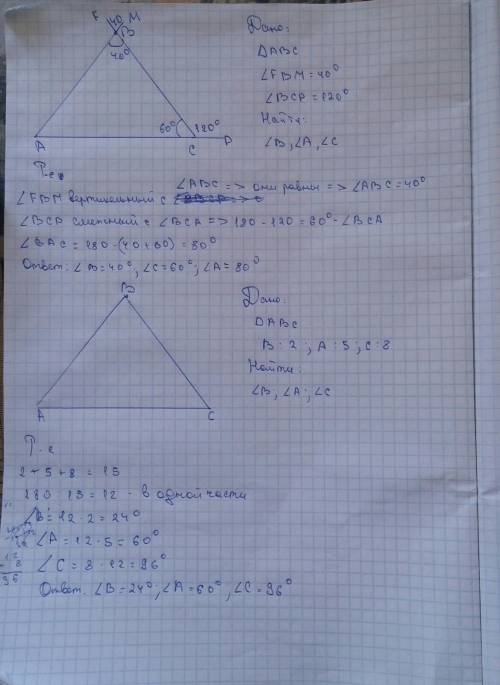 F 40 M
B
40°
60° 120°
A C P
Дано:
△ABC
∠FBM = 40°
∠BCP = 120°
Найти:
∠B, ∠A, ∠C
Т.к
∠FBM вертикальный с ∠ABC => они равны => ∠ABC = 40°
∠BCP смежный с ∠BCA => 180 - 120 = 60° - ∠BCA
∠BAC = 180 - (40 + 60) = 80°
Ответ: ∠B = 40°, ∠C = 60°, ∠A = 80°
B
A C
Дано:
△ABC
B : 2 ; A : 5 ; C : 8
Найти:
∠B, ∠A, ∠C
Т.к
2 + 5 + 8 = 15
180 : 15 = 12 - в одной части
∠B = 12 · 2 = 24°
∠A = 12 · 5 = 60°
∠C = 8 · 12 = 96°
12
8
96
Ответ. ∠B = 24°, ∠A = 60°, ∠C = 96°